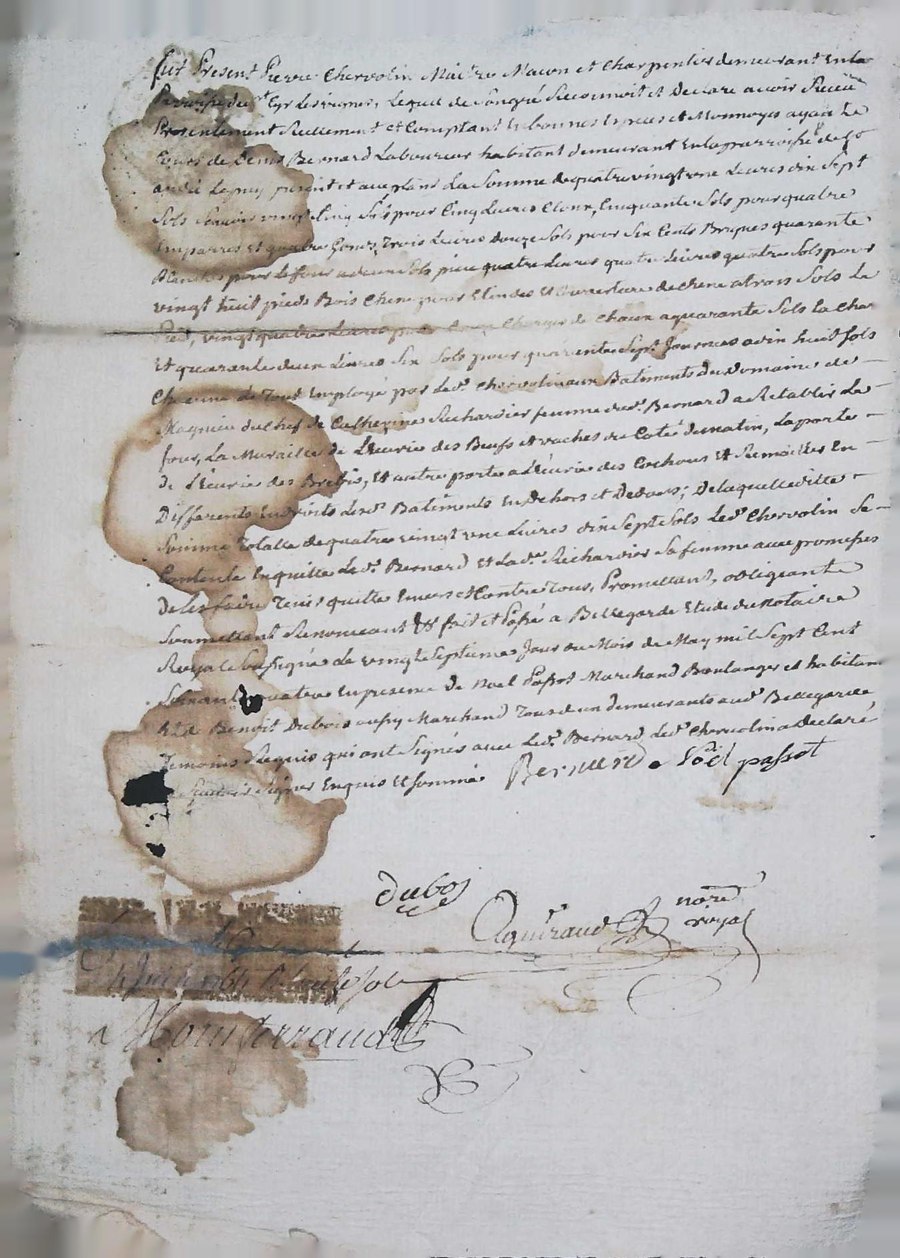 fut Present Pierre Chervolin Maitre Macon et Charpentier demeurant En la
Parroisse de st Cyr Les vignes, Lequel de Son gré Reconnoit et Declare avoir Receu
Presentement Reellement et Comptant En bonnes Especes et Monnoyes ayant
Cours de Denis Bernard Laboureur habitant demeurant En la parroisse de st
andré present et acceptant La Somme de quatre vingt une Livres dix Sept
Sols Scavoir vingt Cinq Sols pour Cinq Livres Cloux, Cinquante Sols pour quatre
Emparres et quatre Gonds, Trois Livres douze Sols pour Six Cents Briques quarante
Planches pour Le four a deux Sols piece quatre Livres quatre Sols pour
vingt huit pieds Bois Chene pour et Couverture de chene a trois Sols Le
Pied, vingt quatre Livres pour douze Charges de Chaux a quarante Sols La Char
Et quarante deux Livres Six Sols pour quarante Sept Journées a dix huit Sols
Chacune Le Tout Employé par Le d. Chervolin aux Batiments du Domaine de
Magnieu du Chef de Catherine Richardier femme du d. Bernard a Retablir Le
four, La Muraille de L'Ecurie des Bœufs et vaches du Coté de Matin, La porte
de L'Ecurie des Brebis, Et autre porte a L'Ecurie des Cochons Et En
Differents Endroits Les d. Batiments En dehors et Dedans; De laquelle ditte
Somme Totalle de quatre vingt une Livres dix Sept Sols Le d. Chervolin Se
Contente En quitte Le d. Bernard Et La d. Richardier Sa femme avec promesses
De Les faire Tenir quitte Envers et Contre Tous, Promettant, obligeant
Soumettant Renonceant &c fait et Passé a Bellegarde Etude du Notaire
Royal Soussigné Le vingt Septieme Jour du Mois de May mil Sept Cent
Soixante quatre En presence de Noel Passot Marchand Boulanger et habitant
Et de Benoit Dubois aussy Marchand Tous deux demeurants au d. Bellegarde
Temoins Requis qui ont Signés avec Le d. Bernard Le d. Chervolin a Declaré
ne Scavoir Signer Enquis et Sommé
Bernard Noël passot
dubos
Aguiraud nore
royal
a Montferrand